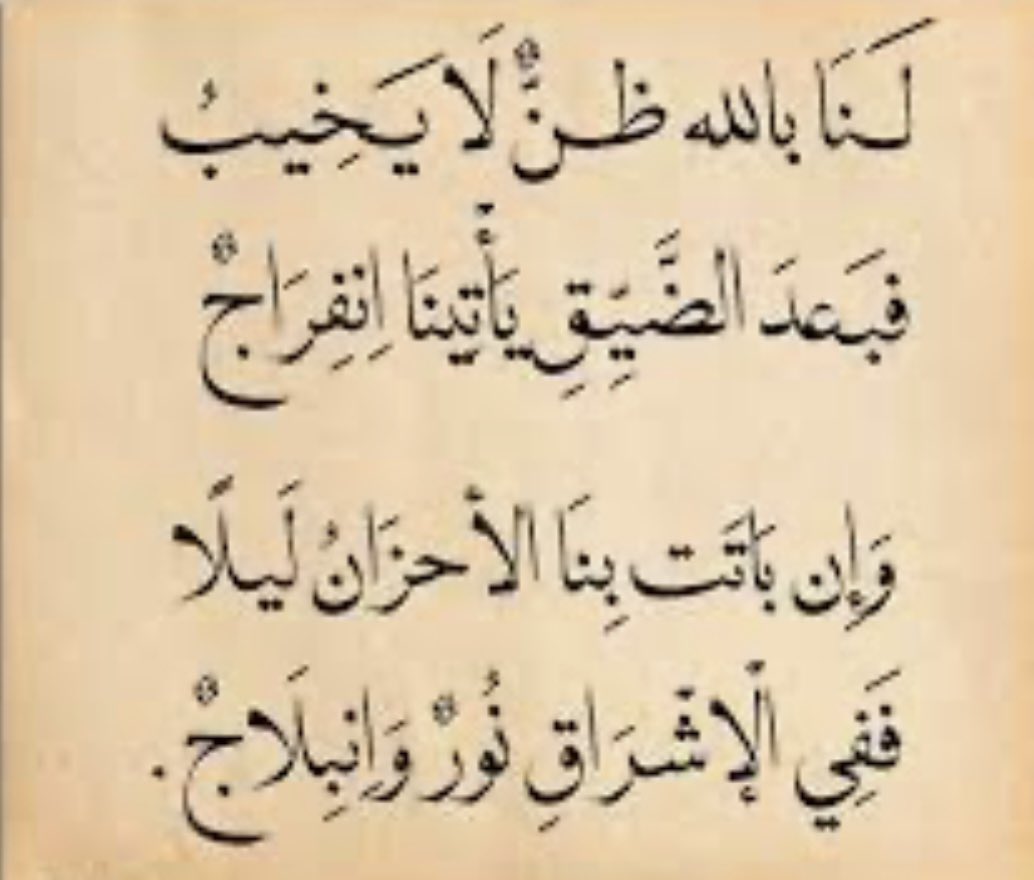 لَنَا بالله ظنٌّ لَا يَخِيبُ
فبَعدَ الضَّيِّقِ يَأْتينَا اِنفِرَاجٌ
وَإِن بَاتَت بِنَا الأحزَانُ لَيلًا
فَفِي الْإشْرَاقِ نُورٌ وَاِنبِلَاجٌ.